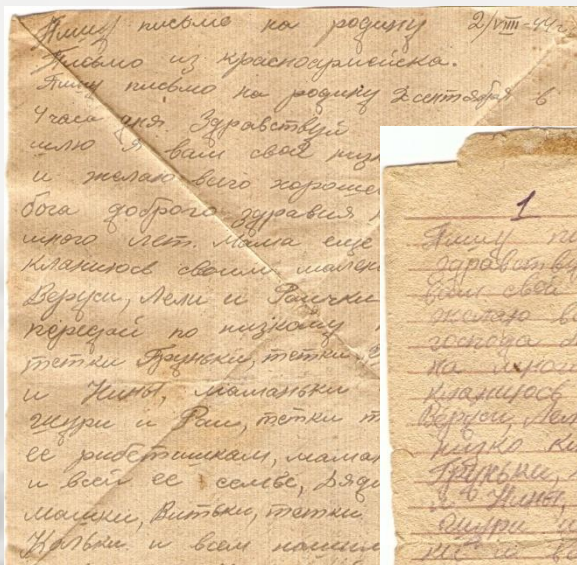 Пишу письмо на родину 2/VIII-44г
Письмо из красноармейска.
Пишу письмо на родину 2 сентября в
4 часа дня. Здравствуй
шлю я вам свой низк
и желаю всиго хороше
бога доброго здравия
много лет. Мама еще
кланиюсь своим мален
Веруси, Лели и Раички
передай по низкому
тетки Груньки, тетки
и Нины, маманьки
Шури и Раи, тетки
ее рибетишкам, мама
и всей ее семье, Дяди
машки, Витьки, тетки
Кольки и всем нашим
1
Пишу пи
здравствуй
вам свой
желаю в
господа
на много
кланиюсь
Веруси, Лел
низко кл
Груньки,
и Нины,
Шури и